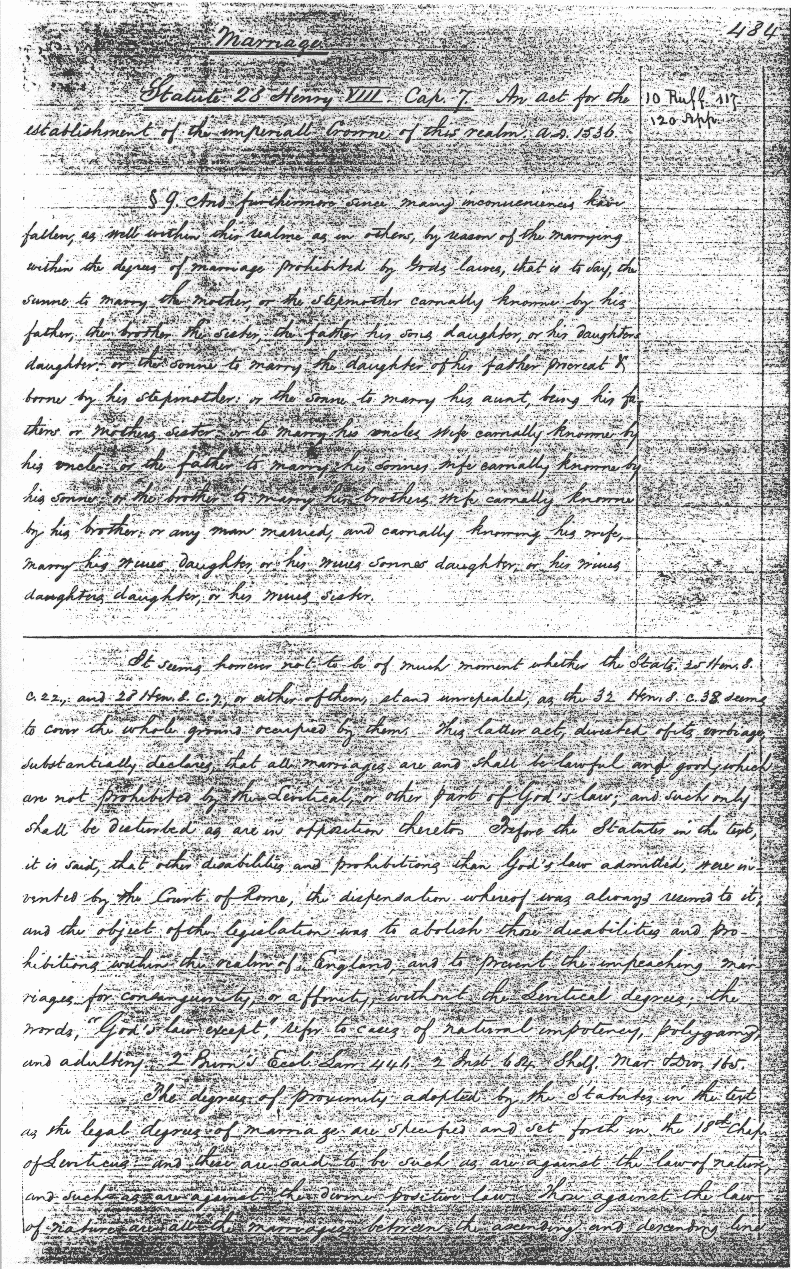 484
Marriage
Statute 28 Henry VIII. Cap. 7. An act for the
10 Ruff. 117
120 App.
establishment of the imperiall Crowne of this realm. A.D. 1536.
§ 9. And furthermore since many inconueniences have
fallen, as well within this realme as in others, by reason of the marrying
within the degrees of marriage prohibited by Gods lawes, that is to say, the
sunne to marry the mother, or the stepmother carnally knowne by his
father, the brother the sister, the father his sons daughter, or his daughters
daughter: or the sonne to marry the daughter of his father procreat &
borne by his stepmother: or the sonne to marry his aunt, being his fa-
thers or mothers sister: or to marry his uncles wife carnally knowne by
his uncle: or the father to marry his sonnes wife carnally knowne by
his sonne: or the brother to marry his brothers wife carnally knowne
by his brother: or any man married, and carnally knowing his wife,
marry his wiues daughter, or his wiues sonnes daughter, or his wiues
daughters daughter, or his wiues sister.
It seems however not to be of much moment whether the Stats. 25 Hen. 8.
c. 22, and 28 Hen. 8. c. 7, or either of them, stand unrepealed, as the 32 Hen. 8. c. 38 seems
to cover the whole ground occupied by them. This latter act, divested of its verbiage,
substantially declares, that all marriages are and shall be lawful and good, which
are not prohibited by the Levitical, or other part of God's law; and such only
shall be disturbed as are in opposition thereto. Before the Statutes in the text,
it is said, that other disabilities and prohibitions than God's law admitted, were in-
vented by the Court of Rome, the dispensation whereof was always reserved to it;
and the object of the legislation was to abolish those disabilities and pro-
hibitions within the realm of England, and to prevent the impeaching mar-
riages for consanguinity, or affinity, without the Levitical degrees; the
words, "God's law except," refer to cases of natural impotency, polygamy,
and adultery. 2 Burn's Eccl. Law 446. 2 Inst. 684. Shelf. Mar. & Div. 165.
The degrees of proximity adopted by the Statutes in the text
as the legal degrees of marriage are specified and set forth in the 18th Chap.
of Leviticus and these are said to be such as are against the law of nature,
and such as are against the divine positive law. Those against the law
of nature are all the marriages between the ascending and descending line